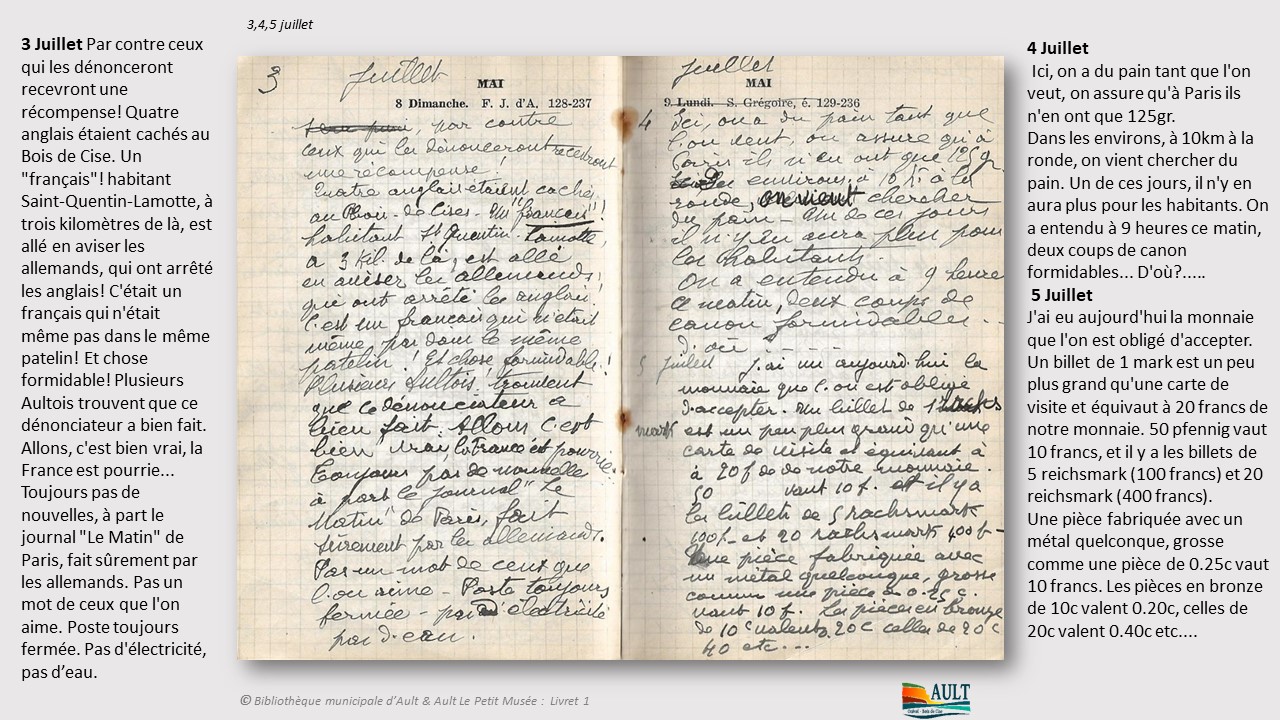 3,4,5 juillet
3 Juillet Par contre ceux
qui les dénonceront
recevront une
récompense! Quatre
anglais étaient cachés au
Bois de Cise. Un
"français"! habitant
Saint-Quentin-Lamotte, à
trois kilomètres de là, est
allé en aviser les
allemands, qui ont arrêté
les anglais! C'était un
français qui n'était
même pas dans le même
patelin! Et chose
formidable! Plusieurs
Aultois trouvent que ce
dénonciateur a bien fait.
Allons, c'est bien vrai, la
France est pourrie...
Toujours pas de
nouvelles, à part le
journal "Le Matin" de
Paris, fait sûrement par
les allemands. Pas un
mot de ceux que l'on
aime. Poste toujours
fermée. Pas d'électricité,
pas d’eau.
3 Juillet
MAI
8 Dimanche. F. J. d'A. 128-237
, par contre
ceux qui les dénonceront recevront
une récompense!
Quatre anglais étaient cachés
au Bois-de Cise. Un "français"!
habitant St Quentin-Lamotte,
à 3 kil. de là, est allé
en aviser les allemands!
qui ont arrêté les anglais!
C'est un français qui n'était
même pas dans le même
patelin! Et chose formidable!
Plusieurs Aultois trouvent
que ce dénonciateur a
bien fait. Allons c'est
bien vrai la France est pourrie
Toujours pas de nouvelle
à part le journal "Le
Matin" de Paris, fait
sûrement par les allemands.
Pas un mot de ceux que
l'on aime - Poste toujours
fermée - pas d'électricité
pas d'eau.
Juillet
MAI
9. Lundi. S. Grégoire, é. 129-236
4 Ici, on a du pain tant que
l'on veut, on assure qu'à
Paris ils n'en ont que 125 g.
environs à 10 K à la
ronde, on vient chercher
du pain - Un de ces jours
il n'y en aura plus pour
les habitants.
On a entendu à 9 heures
ce matin, deux coups de
canon formidables...
D'où - - - -
5 juillet J'ai eu aujourd'hui la
monnaie que l'on est obligé
d'accepter. Un billet de 1
mark est un peu plus grand qu'une
carte de visite et équivaut à
à 20f de notre monnaie.
50 vaut 10 f. et il y a
les billets de 5 rachsmark
100f- et 20 rachsmark 400f-
Une pièce fabriquée avec
un métal quelconque, grosse
comme une pièce de 0.25 c.
vaut 10 f. Les pièces en bronze
de 10c valent 20c celles de 20c
40 etc...
4 Juillet
Ici, on a du pain tant que l'on
veut, on assure qu'à Paris ils
n'en ont que 125gr.
Dans les environs, à 10km à la
ronde, on vient chercher du
pain. Un de ces jours, il n'y en
aura plus pour les habitants. On
a entendu à 9 heures ce matin,
deux coups de canon
formidables... D'où?.....
5 Juillet
J'ai eu aujourd'hui la monnaie
que l'on est obligé d'accepter.
Un billet de 1 mark est un peu
plus grand qu'une carte de
visite et équivaut à 20 francs de
notre monnaie. 50 pfennig vaut
10 francs, et il y a les billets de
5 reichsmark (100 francs) et 20
reichsmark (400 francs).
Une pièce fabriquée avec un
métal quelconque, grosse
comme une pièce de 0.25c vaut
10 francs. Les pièces en bronze
de 10c valent 0.20c, celles de
20c valent 0.40c etc....
© Bibliothèque municipale d’Ault & Ault Le Petit Musée : Livret 1
AULT